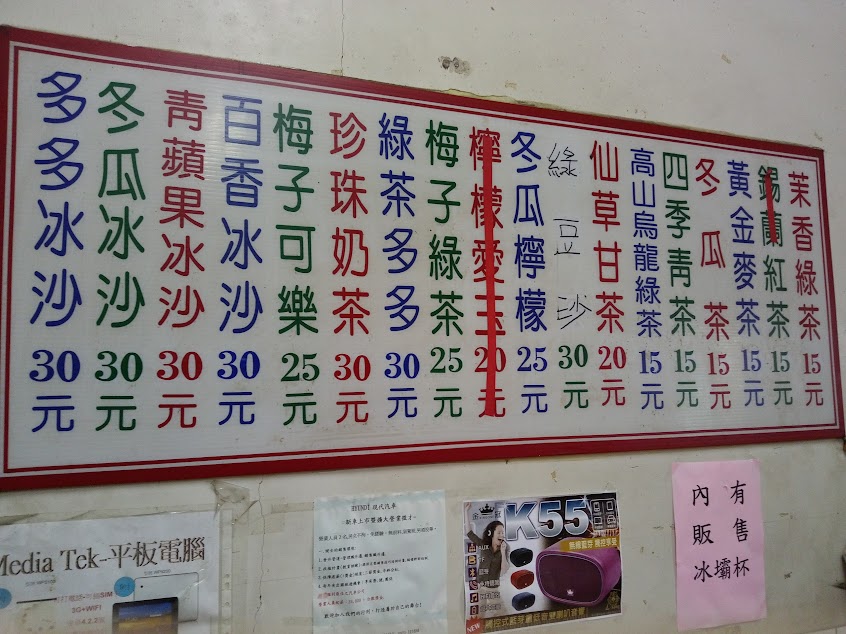 茉香綠茶 15元
錫蘭紅茶 15元
黃金麥茶 15元
冬瓜茶 15元
四季青茶 15元
高山烏龍綠茶 15元
仙草甘茶 20元
綠豆沙 30元
冬瓜檸檬 25元
檸檬愛玉 20元
梅子綠茶 25元
綠茶多多 30元
珍珠奶茶 30元
梅子可樂 25元
百香冰沙 30元
青蘋果冰沙 30元
冬瓜冰沙 30元
多多冰沙 30元
Media Tek-平板電腦
3G+WIFI
HYUNDI 現代汽車
K55
AUX
NEW
內有
販售
冰壩杯